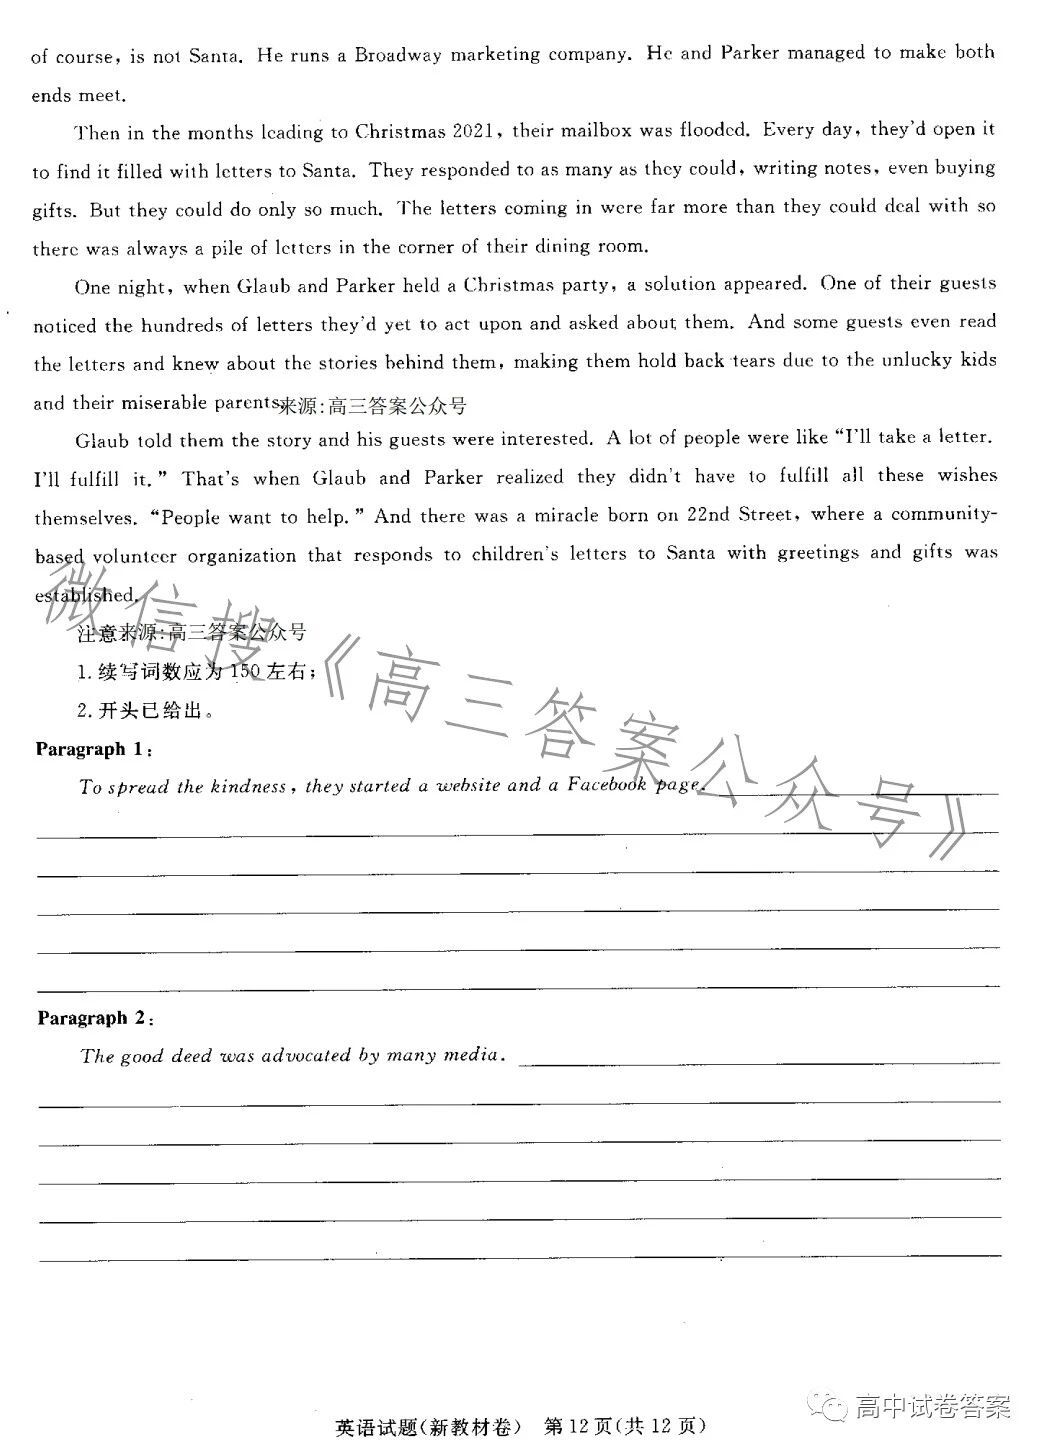 of course, is not Santa. He runs a Broadway marketing company. He and Parker managed to make both
ends meet.
Then in the months leading to Christmas 2021, their mailbox was flooded. Every day, they'd open it
to find it filled with letters to Santa. They responded to as many as they could, writing notes, even buying
gifts. But they could do only so much. The letters coming in were far more than they could deal with so
there was always a pile of letters in the corner of their dining room.
One night, when Glaub and Parker held a Christmas party, a solution appeared. One of their guests
noticed the hundreds of letters they'd yet to act upon and asked about them. And some guests even read
the letters and knew about the stories behind them, making them hold back tears due to the unlucky kids
and their miserable parents来源:高三答案公众号
Glaub told them the story and his guests were interested. A lot of people were like “I'll take a letter.
I'll fulfill it.” That's when Glaub and Parker realized they didn't have to fulfill all these wishes
themselves. “People want to help.” And there was a miracle born on 22nd Street, where a community-
based volunteer organization that responds to children's letters to Santa with greetings and gifts was
established.
注意来源:高三答案公众号
1.续写词数应为150左右;
2.开头已给出。
微信搜《高三答案公众号》
Paragraph 1:
To spread the kindness, they started a website and a Facebook page.
Paragraph 2:
The good deed was advocated by many media.
高中试卷答案
英语试题(新教材卷) 第12页(共12页)